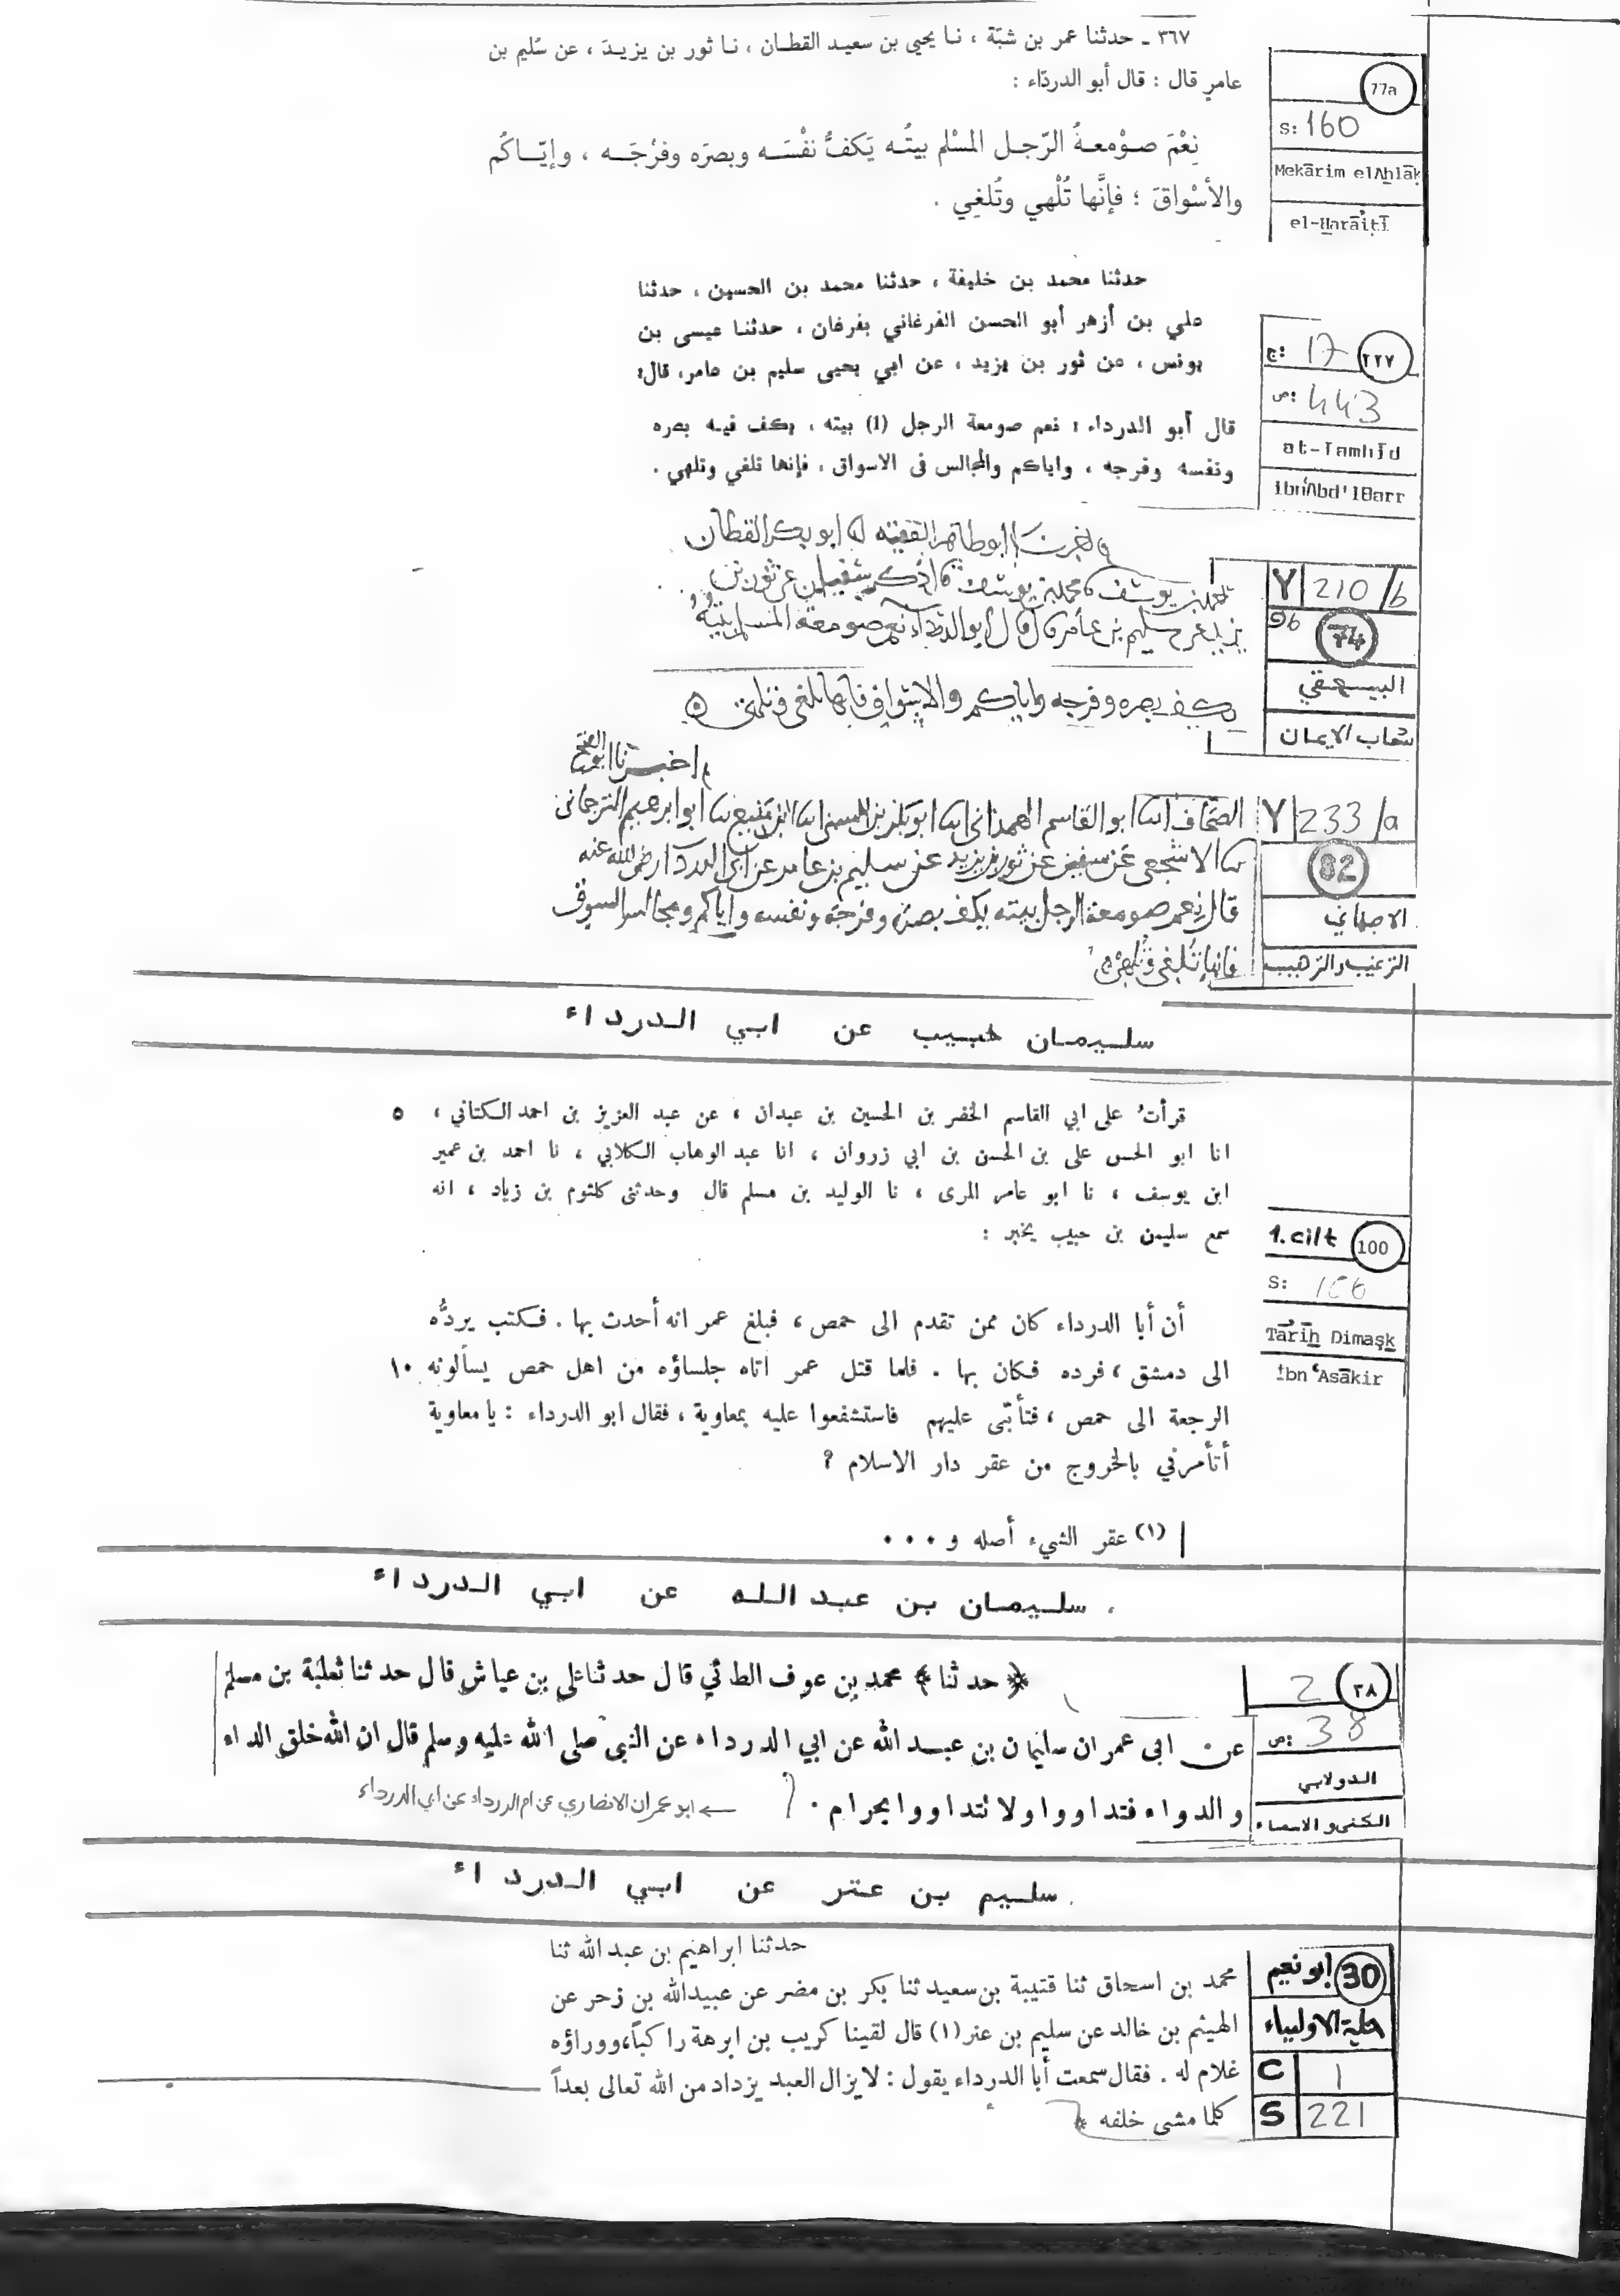 ٣٦٧ ـ حدثنا عمر بن شبّة ، نـا يحيى بن سعيـد القطـان ، نـا ثور بن يزيـدَ ، عن سُليم بن
عامرٍ قال : قال أبو الدردَاء :
نِعْمَ صـوْمعـةُ الرّجـل المسْلم بيتُـه يَكفُّ نفْسَـه وبصرَه وفرْجَـه ، وإيّـاكُم
والأسْواقَ ؛ فإنَّها تُلْهي وتُلغِي .
77a
S: 160
Mekārim elAḫlāḳ
el-Ḫarāiṭī
حدثنا محمد بن خليفة ، حدثنا محمد بن الحسين ، حدثنا
علي بن أزهر أبو الحسن الفرغاني بفرغان ، حدثنا عيسى بن
يونس ، عن ثور بن يزيد ، عن ابي يحيى سليم بن عامر، قال:
قال أبو الدرداء : نعم صومعة الرجل (1) بيته ، يكف فيه بصره
ونفسه وفرجه ، واياكم والمجالس في الاسواق ، فإنها تلغي وتلهي .
ج: 17 ٢٢٧
ص: 443
at-Tamhīd
ibn ʿAbd'lBarr
ابو طاهر الفقيه ابو بكر القطان
يوسف محمد بن يوسف ذكر سفيان عن ثور بن
يزيد عن سليم بن عامر قال قال ابو الدرداء نعم صومعة المسلم بيته
يكف بصره وفرجه واياكم والاسواق فانها تلغى وتلهى
Y 210/b
96 74
البيـهـقي
شعاب الايمان
اخبرنا ابو الفتح
الصحاف ابو القاسم الهمدانى ابو بكر بن ابو ابرهيم الترجمانى
الاشجعى عن سفين عن ثور بن يزيد عن سليم بن عامر عن ابى الدردا رضى الله عنه
قال نعم صومعة الرجل بيته يكف بصره وفرجه ونفسه واياكم ومجالس السوق
فانها تلغى وتلهى
Y 233/a
82
الاصبهاني
الترغيب والترهيب
سلـيمـان حبـيب عن ابـي الـدرداء
قرأت على ابي القاسم الخضر بن الحسين بن عبدان ، عن عبد العزيز بن احمد الكتاني ، ٥
انا ابو الحسن على بن الحسن بن ابي زروان ، انا عبد الوهاب الكلابي ، نا احمد بن عمير
ابن يوسف ، نا ابو عامر المرى ، نا الوليد بن مسلم قال وحدثنى كلثوم بن زياد ، انه
سمع سليمن بن حبيب يخبر :
أن أبا الدرداء كان ممن تقدم الى حمص ، فبلغ عمر انه أحدث بها . فكتب يردُّه
الى دمشق ، فرده فكان بها . فلما قتل عمر اتاه جلساؤه من اهل حمص يسألونه ١٠
الرجعة الى حمص ، فتأبّى عليهم فاستشفعوا عليه بمعاوية ، فقال ابو الدرداء : يا معاوية
أتأمرني بالخروج من عقر دار الاسلام ؟
(١) عقر الشيء أصله و ...
1.cilt 100
S: 156
Tārīḫ Dimaşḳ
ibn ʿAsākir
سلـيمـان بن عبـد اللـه عن ابـي الـدرداء
﴿ حدثنا ﴾ محمد بن عوف الطائي قال حدثنا علي بن عياش قال حدثنا ثعلبة بن مسلم
عن ابى عمران سليمان بن عبد الله عن ابي الدرداء عن النبى صلى الله عليه وسلم قال ان الله خلق الداء
والدواء فتداووا ولا تتداووا بحرام .
← ابو عمران الانصاري عن ام الدرداء عن ابي الدرداء
2 ٣٨
ص: 38
الـدولابي
الـكنى و الاسمـاء
سلـيم بـن عـتر عن ابـي الـدرداء
حدثنا ابراهيم بن عبد الله ثنا
محمد بن اسحاق ثنا قتيبة بن سعيد ثنا بكر بن مضر عن عبيدالله بن زحر عن
الهيثم بن خالد عن سليم بن عنر(١) قال لقينا كريب بن ابرهة راكباً، ووراؤه
غلام له . فقال سمعت أبا الدرداء يقول : لا يزال العبد يزداد من الله تعالى بعداً
كلما مشى خلفه *
أبو نعيم 30
حلية الاولياء
C 1
S 221